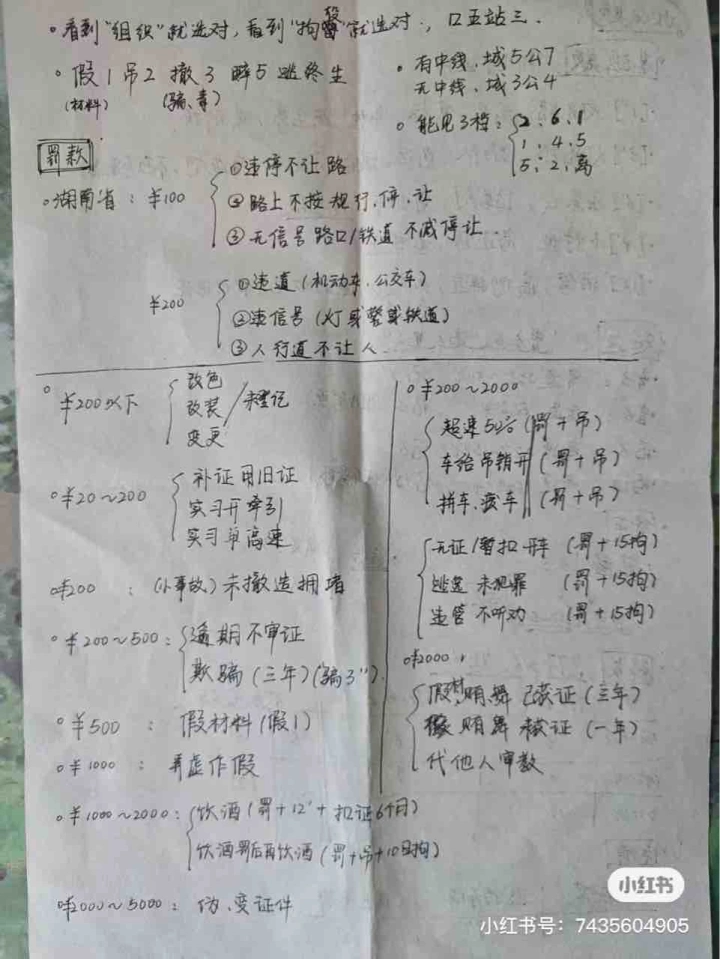 。看到"组织"就选对，看到"拘役"就选对，口五站三.
。假1吊2 撤3 醉5 逃终生
(材料) (骗、毒)
。有中线，城5公7
无中线，城3公4
。能见3档：2、6、1
1、4、5
5、2、离
罚款
。湖南省：¥100
①违停不让路
②路上不按规行、停、让
③无信号路口/铁道 不减停让.
¥200
①违道(机动车、公交车)
②违信号(灯或警或铁道)
③人行道不让人
。¥200以下
改色
改装/未登记
变更
。¥20～200
补证用旧证
实习开牵引
实习单高速
。¥200：(小事故)未撤造拥堵
。¥200～500：逾期不审证
欺骗(三年)("骗3")
。¥500：假材料(假1)
。¥1000：弄虚作假
。¥1000～2000：饮酒(罚+12'+扣证6个月)
饮酒罚后再饮酒(罚+吊+10日拘)
。¥2000～5000：伪、变证件
。¥200～2000
超速50%(罚+吊)
车给吊销开(罚+吊)
拼车、废车(罚+吊)
无证/暂扣开车(罚+15拘)
逃逸 未犯罪(罚+15拘)
违管 不听劝(罚+15拘)
。¥2000：
假材,贿,舞 已获证(三年)
贿 舞 未获证(一年)
代他人审教
小红书
小红书号：7435604905